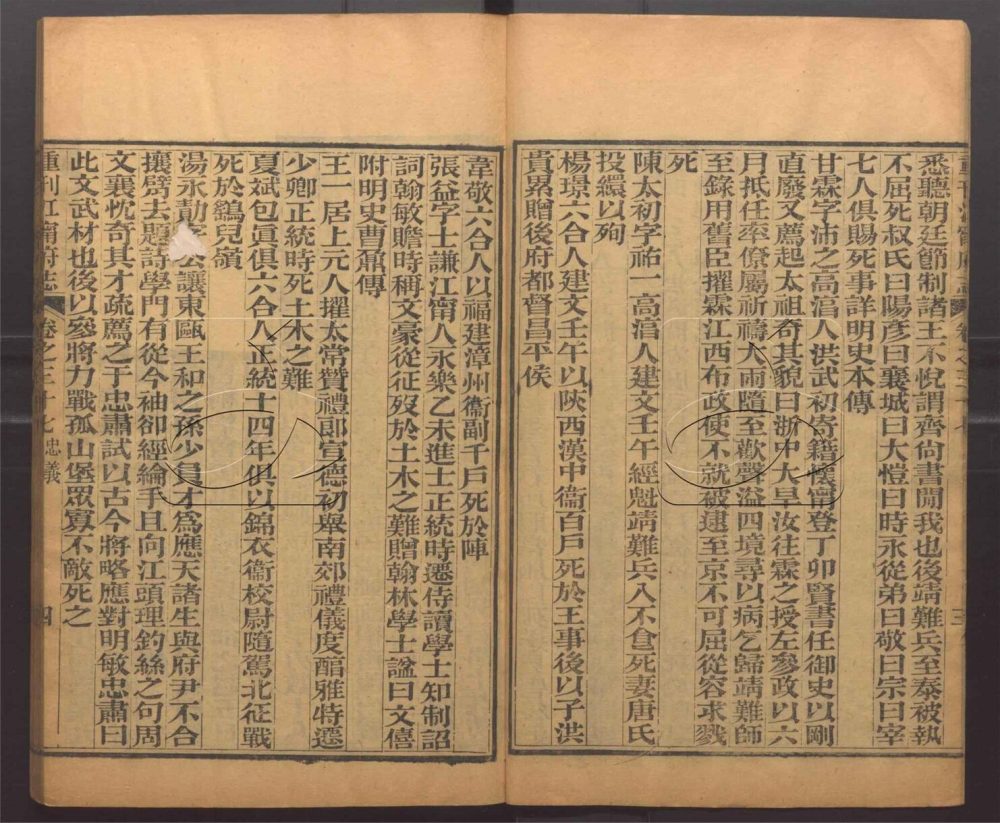 悉聽朝廷節制諸王不悅謂齊尚書閒我也後靖難兵至泰被執
不屈死叔氏曰陽彥曰襄城曰大愷曰時永從弟曰敬曰宗曰宰
七人俱賜死事詳明史本傳
甘霖字沛之高湻人洪武初寄籍懷甯登丁卯賢書任御史以剛
直廢又薦起太祖奇其貌曰浙中大旱汝往霖之授左參政以六
月抵任率僚屬祈禱大雨隨至歡聲溢四境尋以病乞歸靖難師
至錄用舊臣擢霖江西布政使不就被逮至京不可屈從容求戮
死
陳太初字祐一高湻人建文壬午經魁靖難兵入不食死妻唐氏
投繯以殉
楊璟六合人建文壬午以陝西漢中衞百戶死於王事後以子洪
貴累贈後府都督昌平侯
三
韋敬六合人以福建漳州衞副千戶死於陣
張益字士謙江甯人永樂乙未進士正統時遷侍讀學士知制誥
詞翰敏贍時稱文豪從征歿於土木之難贈翰林學士諡曰文僖
附明史曹鼐傳
王一居上元人擢太常贊禮郎宣德初舉南郊禮儀度醞雅特遷
少卿正統時死土木之難
夏斌包眞俱六合人正統十四年俱以錦衣衞校尉隨駕北征戰
死於鷂兒嶺
湯永勣字公讓東甌王和之孫少負才爲應天諸生與府尹不合
攘臂去題詩學門有從今袖卻經綸手且向江頭理釣絲之句周
文襄忱奇其才疏薦之于忠肅試以古今將略應對明敏忠肅曰
此文武材也後以參將力戰孤山堡眾寡不敵死之
重刊江甯府志 卷之三十七 忠義 四